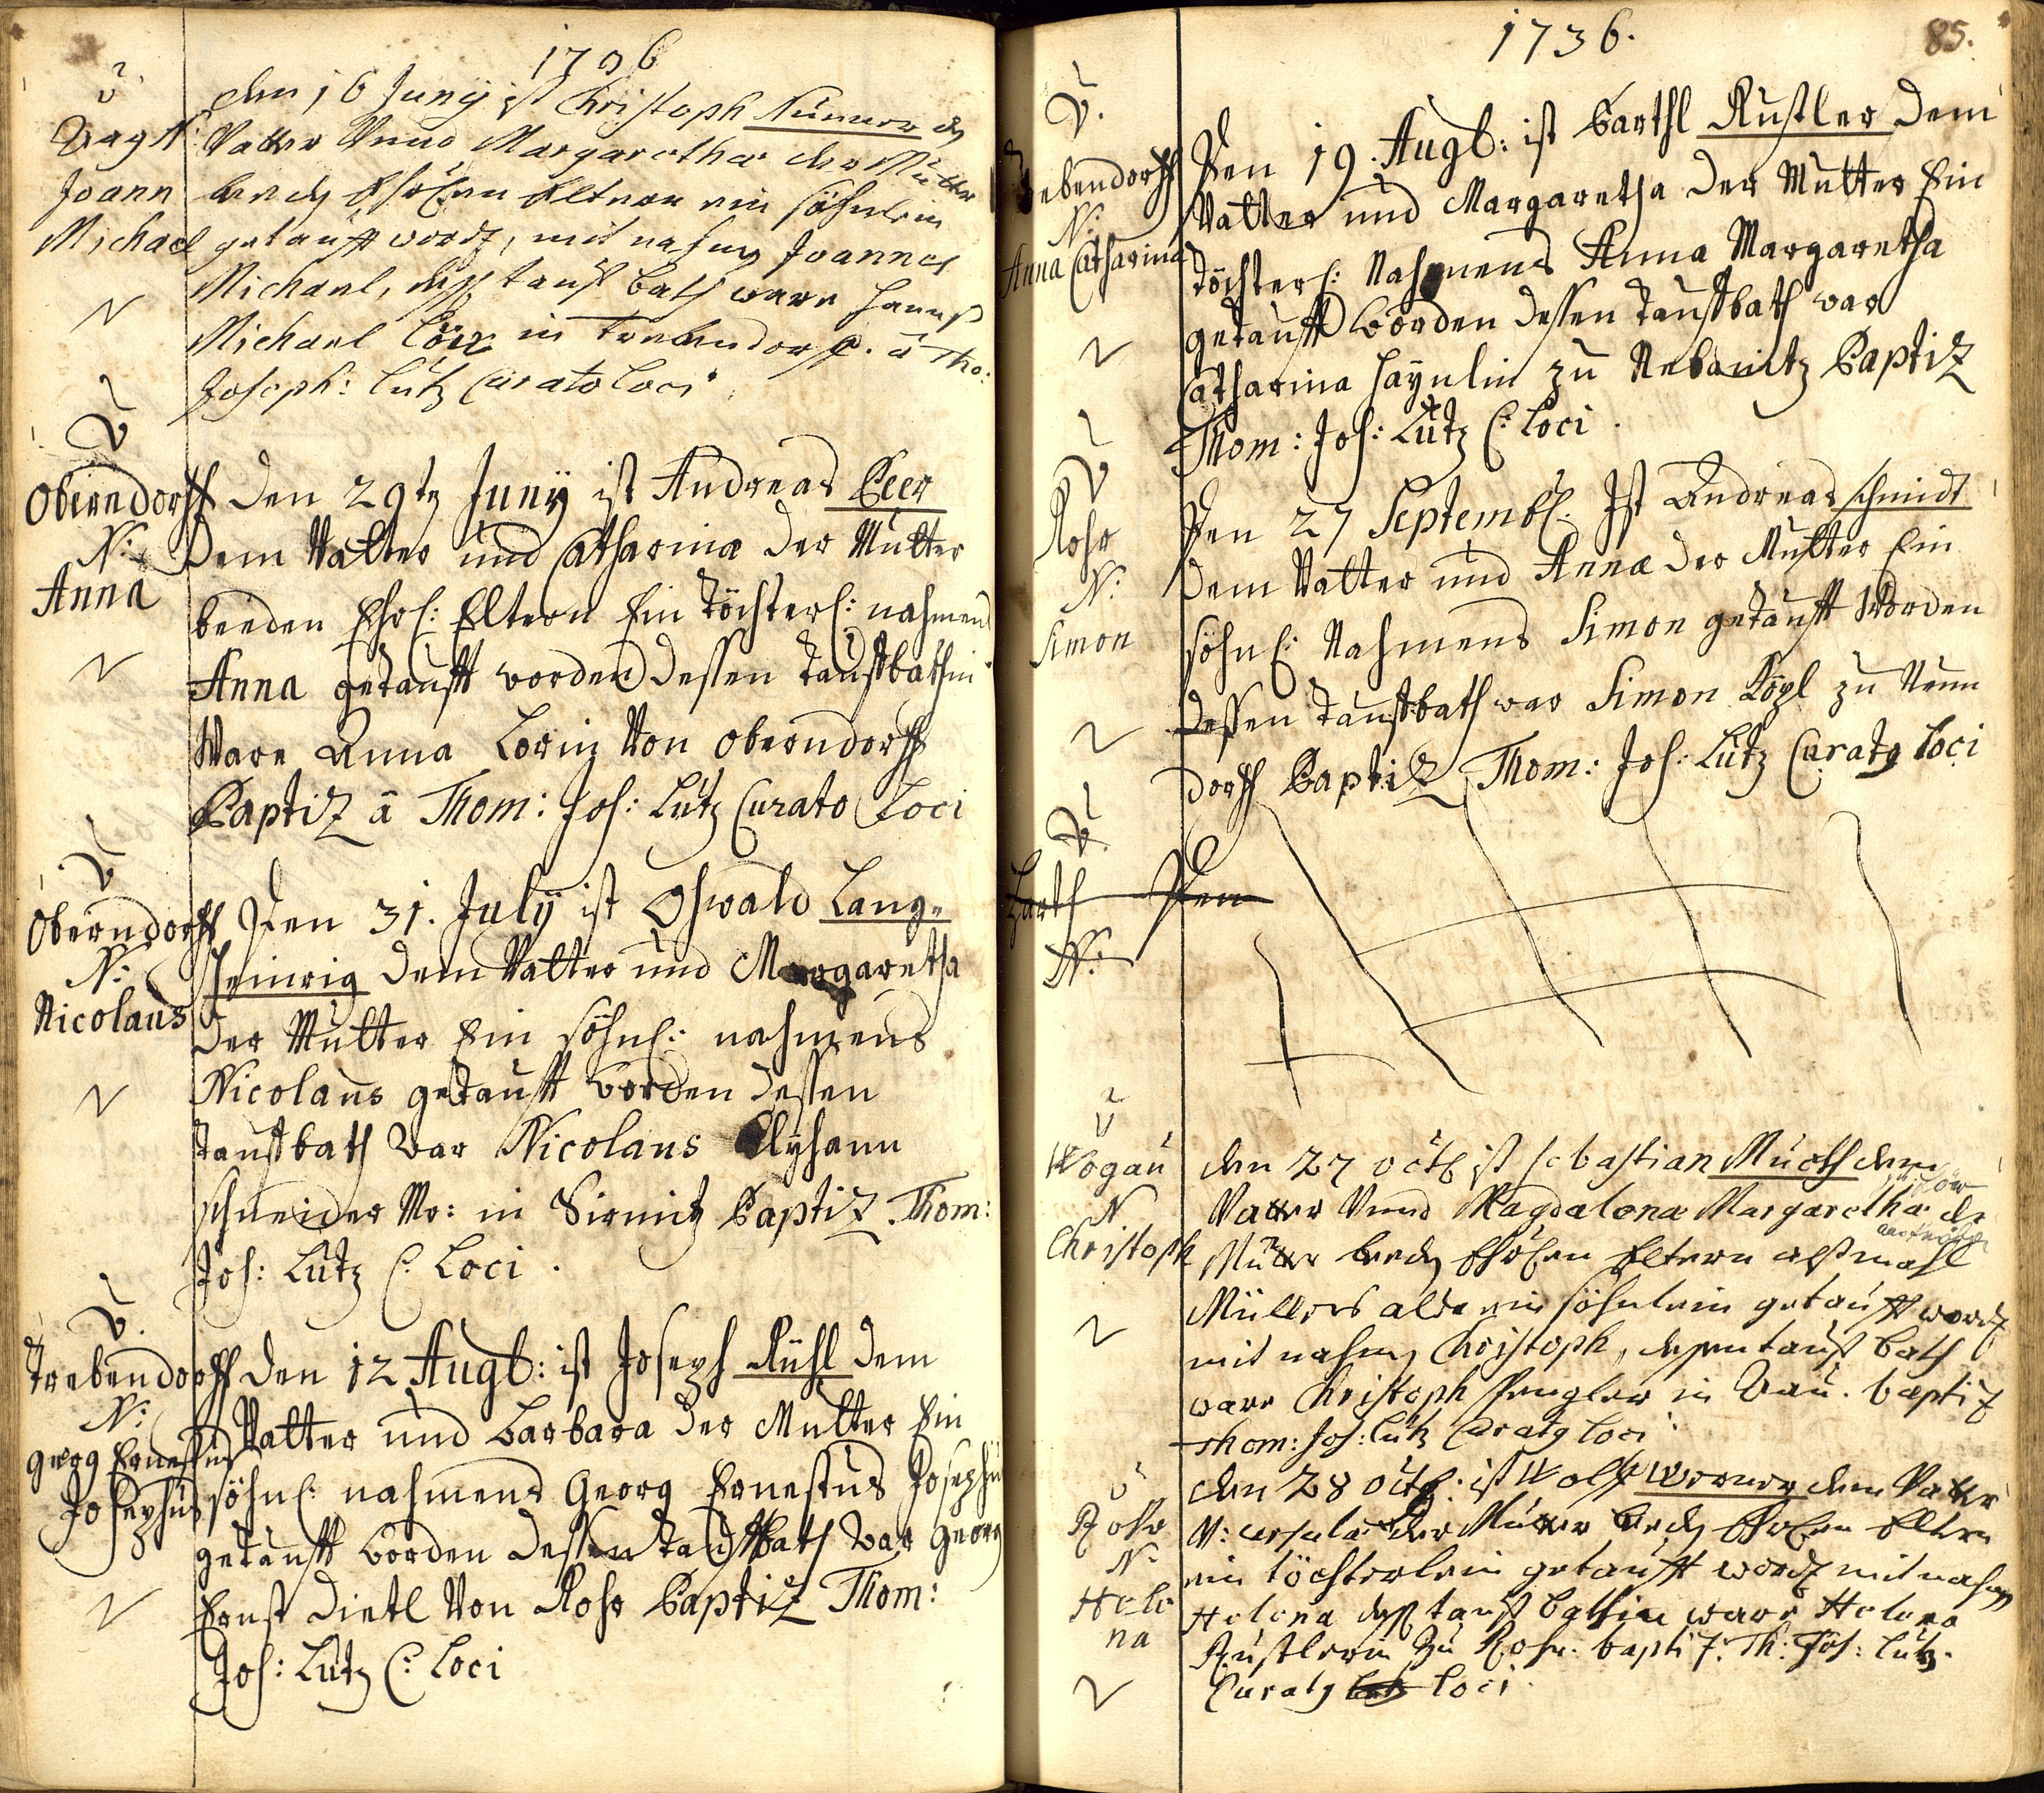 1736
den 16 Juny ist Christoph
Vatter Vnnd Margaretha der Mutter
beeden Ehrlichen Eltern ein söhnlein
getaufft word, mit nahmen Joannes
Michael, tauf bath ware Hannß
Michael in Trebendorff. à Tho:
Joseph: Lutz Curato Loci
Joann
Michael
Oberndorff
N:
Anna
Den 29t Juny ist Andreas Beer
Dem Vatter und Catharina der Mutter
beeden Ehrl: Eltern Ein Töchterl: nahmens
Anna getaufft worden dessen Tauffbathin
Ware Anna Lorin Von Oberndorff
Baptiz à Thom: Jos: Lutz Curato Loci
Oberndorff
N:
Nicolaus
Den 31. July ist Oswald Lang-
heinrig dem Vatter und Margaretha
der Mutter Ein söhnl: nahmens
Nicolaus getaufft worden dessen
tauffbath war Nicolaus
schneider Mr: in Sirmitz Baptiz Thom:
Jos: Lutz C: Loci.
Trebendorff
N:
Georg Ernestus
Josephus
den 12 Augb: ist Joseph Rühl dem
Vatter und Barbara der Mutter Ein
söhnl: nahmens Georg Ernestus Josephus
getaufft worden dessen Tauffbath war Georg
Ernst Dietl Von Rohr Baptiz Thom:
Jos: Lutz C: Loci
1736. 85.
Trebendorff
N:
Anna Catharina
Den 19. Augb: ist Barthl Rustler dem
Vatter und Margaretha der Mutter Ein
töchterl: Nahmens Anna Margaretha
getaufft worden dessen Tauffbath war
Catharina Haynlin zu Nebanitz Baptiz
Thom: Jos: Lutz C: Loci.
Rohr
N:
Simon
Den 27 Septembl. Ist Andreas schmidt
dem Vatter und Anna der Mutter Ein
söhnl: Nahmens Simon getaufft Worden
dessen Tauffbath war Simon zu Neun
dorff Baptiz Thom: Jos: Lutz Curato Loci
Den
N:
Wogau
N
Christoph
den 27 octb ist sebastian Muoth dem
Vatter Vnnd Magdalena Margaretha der
Mutter beeden Ehrlichen Eltern
Müllers alda ein söhnlein getaufft word
mit nahmen Christoph, dessen tauf bath
ware Christoph Spengler in Aau. baptiz
Thom: Jos: Lutz Curato Loci
Rohr
N:
Hele
na
den 28 octb: ist Wolff Werner dem Vatter
V: ursula der Mutter beeden Ehrlichen Eltern
ein töchterlein getaufft word mit nahmen
Helena tauf bathin ware Helena
Rustlerin zu Rohr. baptiz. Th: Jos: Lutz.
Curato Loci